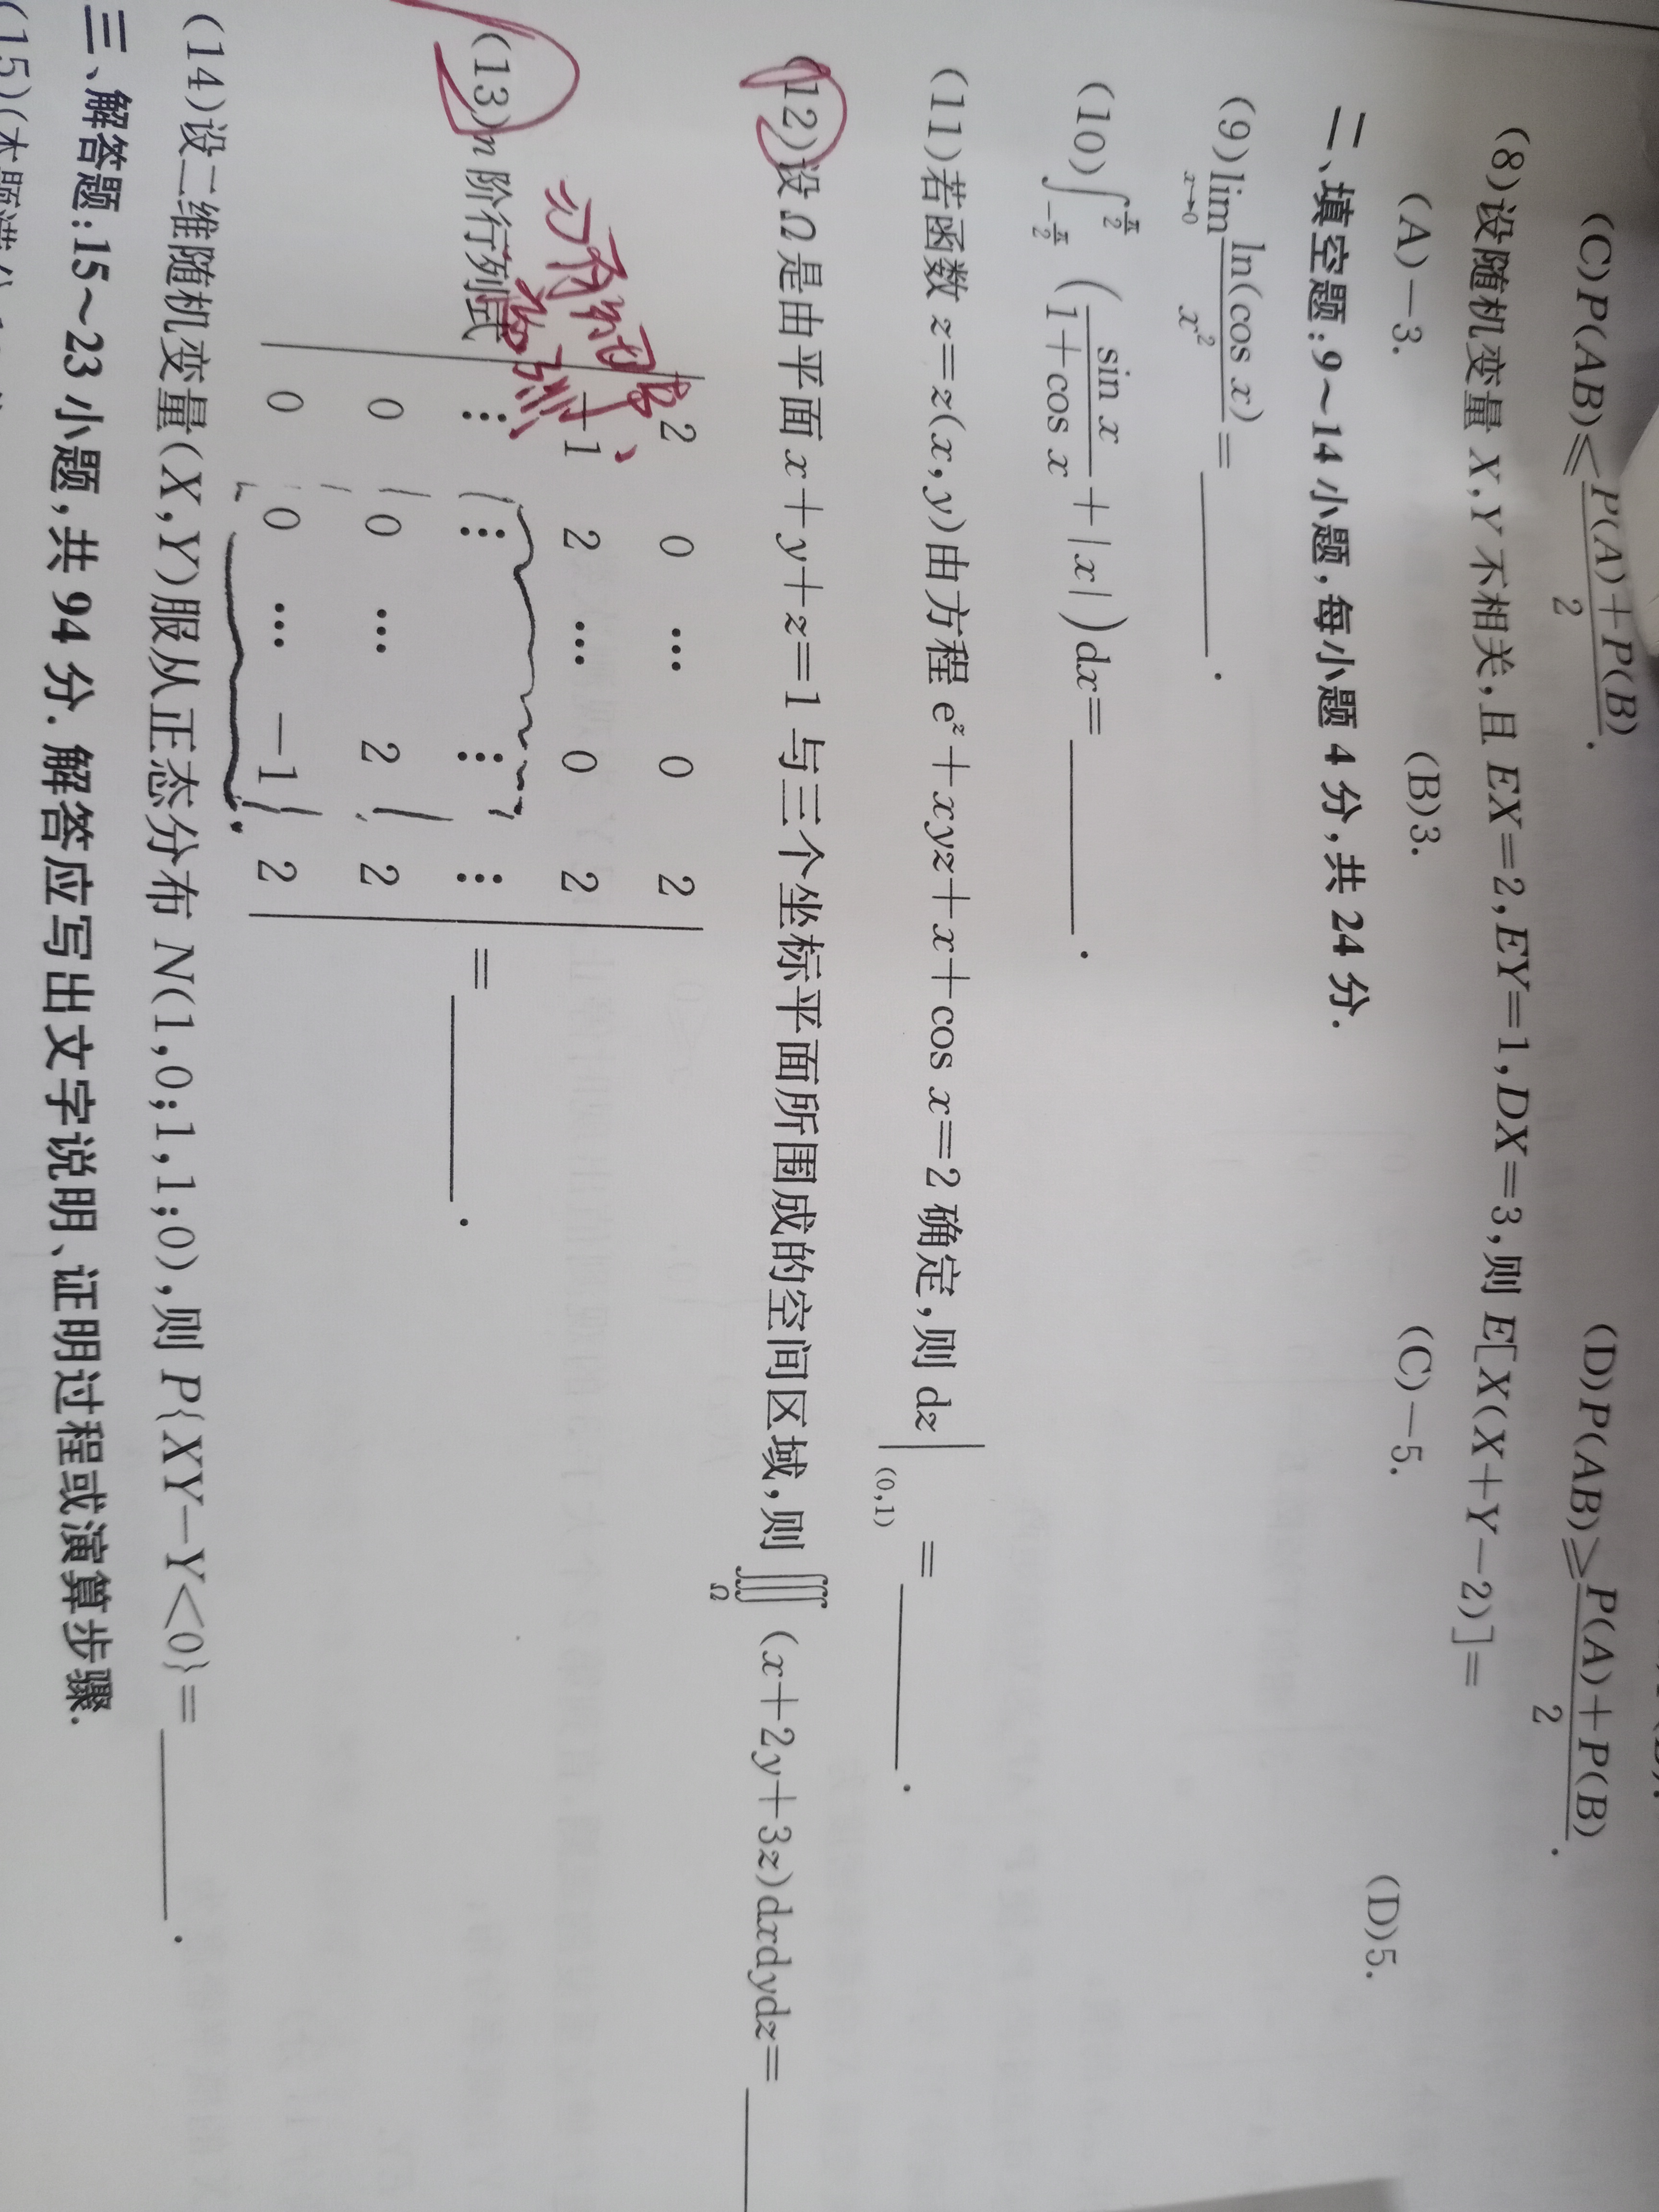 (C)P(AB)≤(P(A)+P(B))/2. (D)P(AB)≥(P(A)+P(B))/2.
(8)设随机变量 X,Y 不相关,且 EX=2,EY=1,DX=3,则 E[X(X+Y-2)]=
(A)-3. (B)3. (C)-5. (D)5.
二、填空题:9~14 小题,每小题 4 分,共 24 分.
(9)lim_{x→0} ln(cos x)/x² = ______.
(10)∫_{-π/2}^{π/2} (sin x/(1+cos x)+|x|)dx= ______.
(11)若函数 z=z(x,y)由方程 e^z+xyz+x+cos x=2 确定,则 dz|_(0,1) = ______.
(12)设 Ω 是由平面 x+y+z=1 与三个坐标平面所围成的空间区域,则 ∭_Ω (x+2y+3z)dxdydz= ______
2 0 … 0 2
-1 2 … 0 2
(13)n 阶行列式 ⋮ ⋮ ⋮ ⋮ = ______.
0 0 … 2 2
0 0 … -1 2
(14)设二维随机变量(X,Y)服从正态分布 N(1,0;1,1;0),则 P{XY-Y<0}= ______.
三、解答题:15~23 小题,共 94 分. 解答应写出文字说明、证明过程或演算步骤.
(15)(本题满分